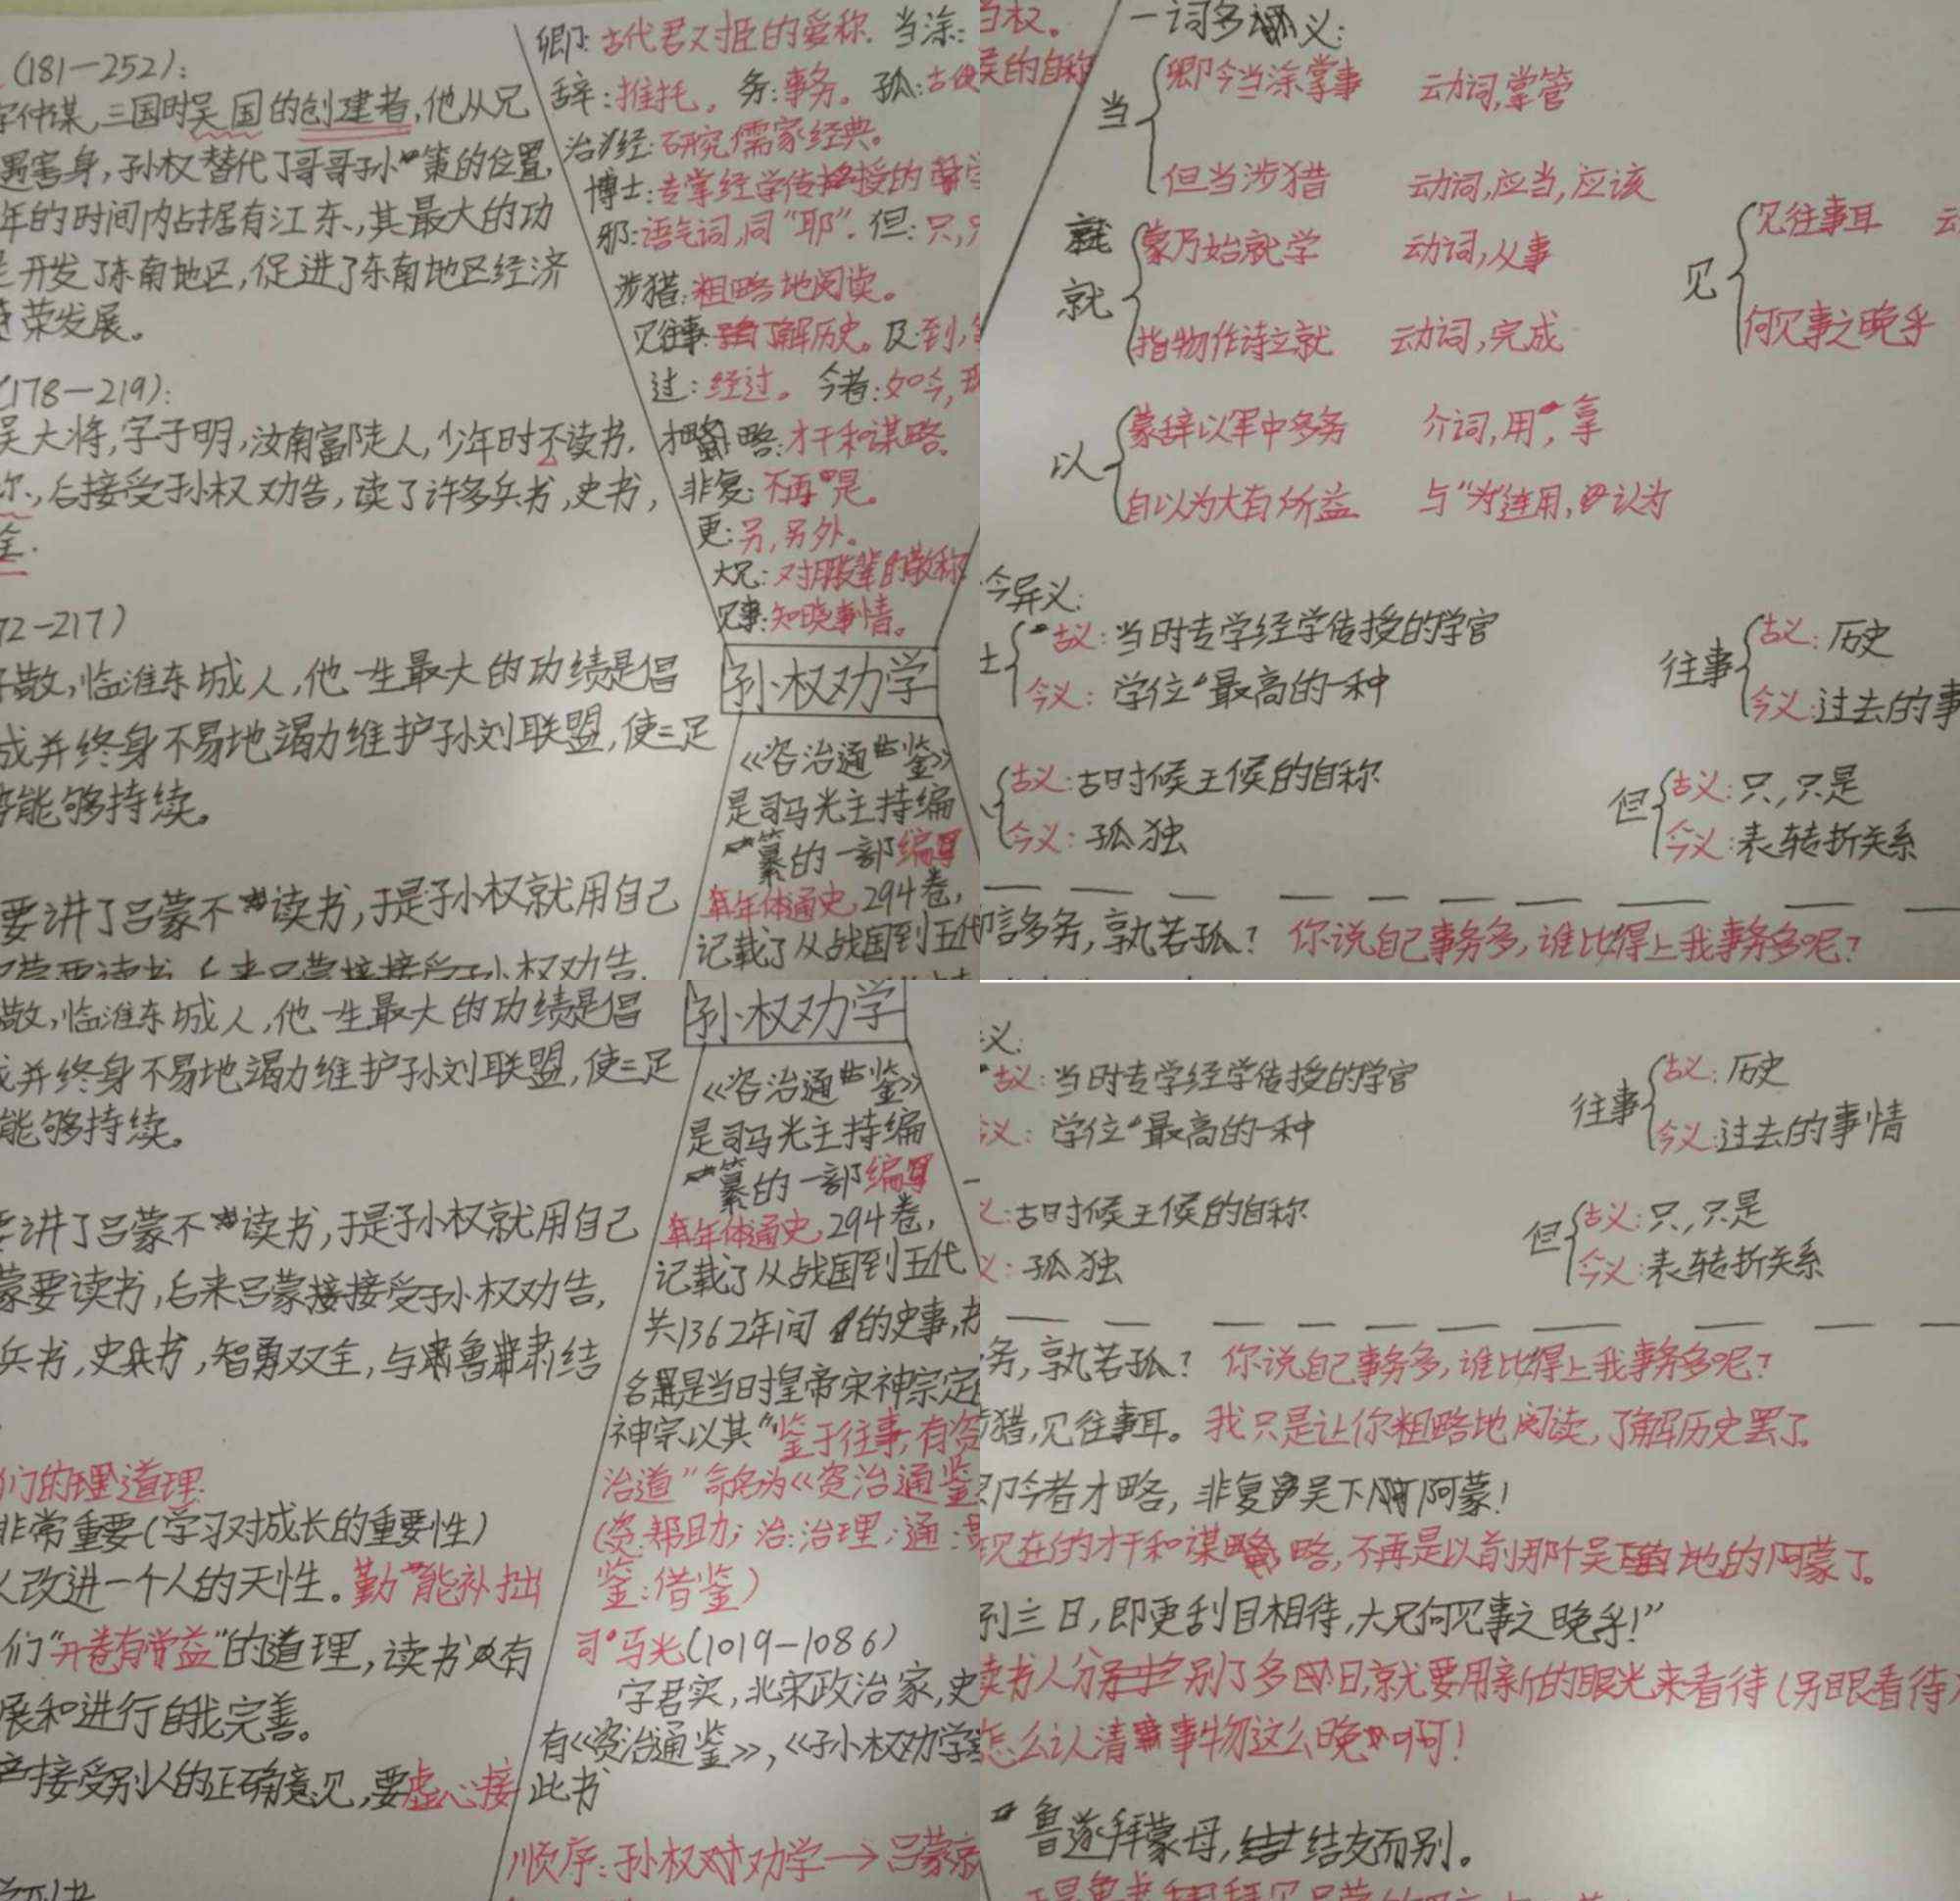 (181—252):
字仲谋,三国时吴国的创建者,他从兄
遇害身,孙权替代了哥哥孙策的位置,
年的时间内占据有江东,其最大的功
开发了东南地区,促进了东南地区经济
荣发展。
(178—219):
吴大将,字子明,汝南富陂人,少年时不读书.
后接受孙权劝告,读了许多兵书,史书,
72-217)
敬,临淮东城人,他一生最大的功绩是倡
成并终身不易地竭力维护孙刘联盟,使三足
能够持续。
要讲了吕蒙不读书,于是孙权就用自己
卿:古代君对臣的爱称. 当涂:
辞:推托。 务:事务。 孤:古
治经:研究儒家经典。
博士:专掌经学传授的学
邪:语气词,同“耶”. 但:只,
涉猎:粗略地阅读。
见往事:了解历史。及:到,
过:经过。 今者:如今,现
才略:才干和谋略。
非复:不再是。
更:另,另外。
大兄:对朋友辈的敬称
见事:知晓事情。
孙权劝学
《资治通鉴》
是司马光主持编
纂的一部编
年体通史,294卷,
记载了从战国到五代
权。
的自称
一词多义:
当
卿今当涂掌事 动词,掌管
但当涉猎 动词,应当,应该
就
蒙乃始就学 动词,从事
指物作诗立就 动词,完成
见
见往事耳
何见事之晚乎
以
蒙辞以军中多务 介词,用,拿
自以为大有所益 与“为”连用,认为
今异义:
士
古义:当时专学经学传授的学官
今义:学位最高的一种
往事
古义:历史
今义:过去的事
古义:古时候王候的自称
今义:孤独
但
古义:只,只是
今义:表转折关系
言多务,孰若孤? 你说自己事务多,谁比得上我事务多呢?
敬,临淮东城人,他一生最大的功绩是倡
并终身不易地竭力维护孙刘联盟,使三足
能够持续。
讲了吕蒙不读书,于是孙权就用自己
蒙要读书,后来吕蒙接接受孙权劝告,
兵书,史书,智勇双全,与鲁肃结
们的道理:
非常重要(学习对成长的重要性)
改进一个人的天性。勤能补拙
们“开卷有益”的道理,读书有
展和进行自我完善。
接受别人的正确意见,要虚心接
孙权劝学
《资治通鉴》
是司马光主持编
纂的一部编
年体通史,294卷,
记载了从战国到五代
共1362年间的史事,
名是当时皇帝宋神宗定
神宗以其“鉴于往事,有资
治道”命名为《资治通鉴
(资:帮助;治:治理;通:
鉴:借鉴)
司马光(1019—1086)
字君实,北宋政治家,史
有《资治通鉴》,《孙权劝学
此书
顺序:孙权劝学→吕蒙
义:
古义:当时专学经学传授的学官
义:学位最高的一种
往事
古义:历史
今义:过去的事情
义:古时候王候的自称
义:孤独
但
古义:只,只是
今义:表转折关系
务,孰若孤? 你说自己事务多,谁比得上我事务多呢?
猎,见往事耳。我只是让你粗略地阅读,了解历史罢了.
卿今者才略,非复吴下阿蒙!
现在的才干和谋略,不再是以前那个吴地的阿蒙了。
别三日,即更刮目相待,大兄何见事之晚乎!”
读书人分别了多日,就要用新的眼光来看待(另眼看待)
怎么认清事物这么晚啊!
鲁遂拜蒙母,结友而别。